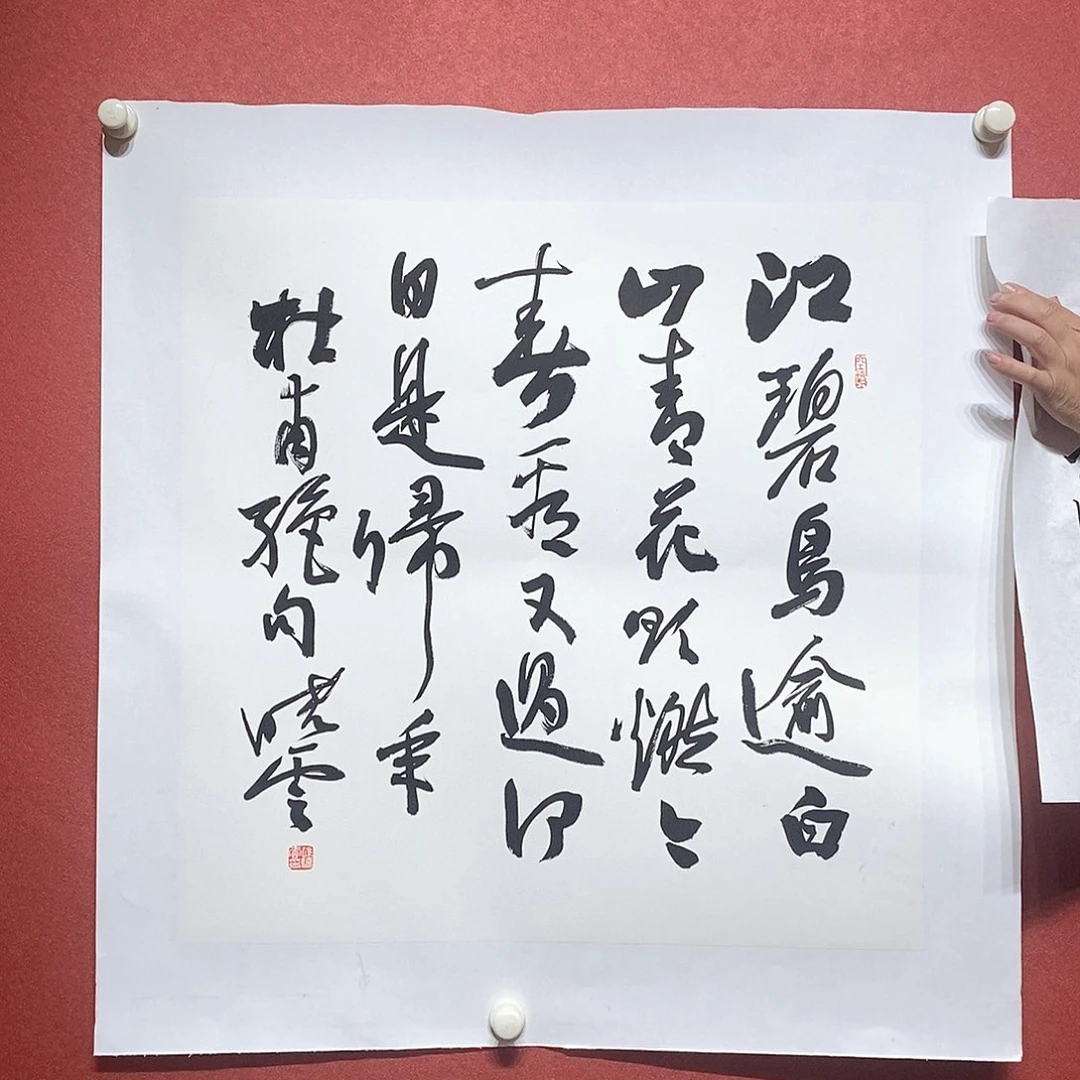 江碧鳥逾白
山青花欲燃今
春看又過何
日是歸年
杜甫絕句曉雲